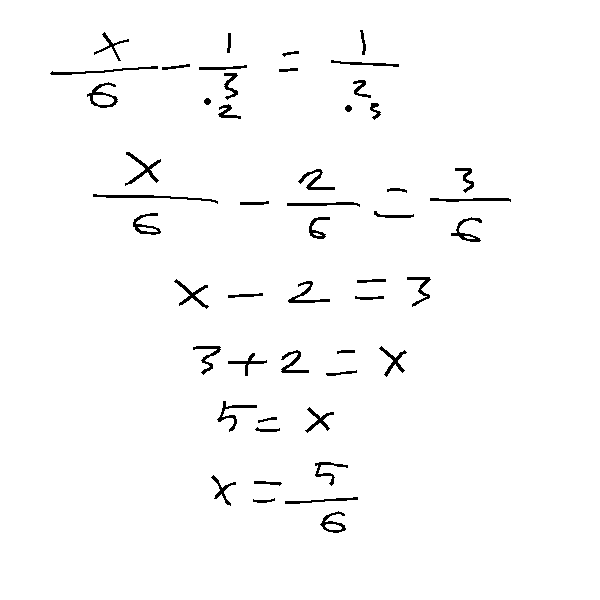 x/6 - 1/3 = 1/2
.2 .3
x/6 - 2/6 = 3/6
x - 2 = 3
3 + 2 = x
5 = x
x = 5/6